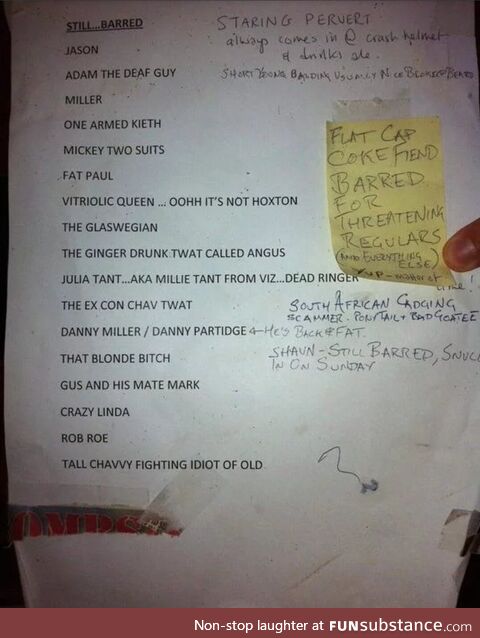 STILL...BARRED
STARING PERVERT
always comes in @ crash helmet
& drinks ale.
JASON
ADAM THE DEAF GUY
SHORT YOUNG BALDING USUALLY N
MILLER
ONE ARMED KIETH
MICKEY TWO SUITS
FAT PAUL
VITRIOLIC QUEEN ... OOHH IT'S NOT HOXTON
THE GLASWEGIAN
THE GINGER DRUNK TWAT CALLED ANGUS
JULIA TANT...AKA MILLIE TANT FROM VIZ...DEAD RINGER
THE EX CON CHAV TWAT
DANNY MILLER / DANNY PARTIDGE ← HE'S BACK & FAT.
THAT BLONDE BITCH
GUS AND HIS MATE MARK
CRAZY LINDA
ROB ROE
TALL CHAVVY FIGHTING IDIOT OF OLD
FLAT CAP
COKE FIEND
BARRED
FOR
THREATENING
REGULARS
(AND EVERYTHING
ELSE)
YUP - matter of
time!
SOUTH AFRICAN CADGING
SCAMMER. PONYTAIL & BAD GOATEE
SHAUN - STILL BARRED, SNUCK
IN ON SUNDAY
Non-stop laughter at FUNsubstance.com